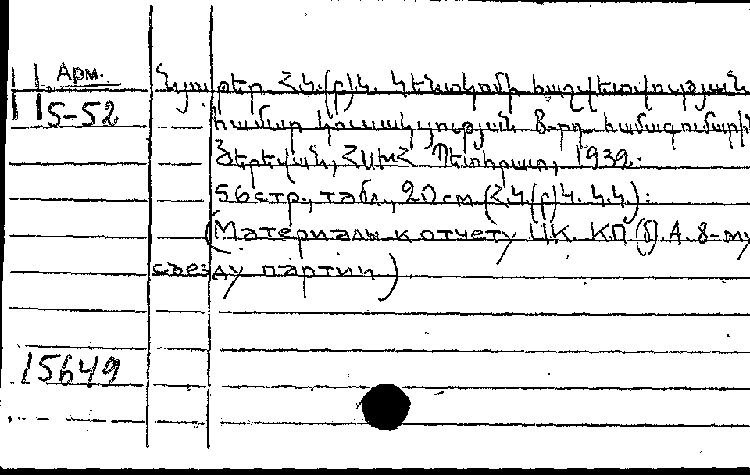 Арм. Նյութեր ՀԿ(բ)Կ. Կենտկոմի հաշվետվության
5-52 համար կուսակցության 8-րդ համագումարին
Յերեվան, ՀՍԽՀ Պետհրատ, 1932.
56 стр., табл., 20 см (ՀԿ(բ)Կ. Կ.Կ.):
(Материалы к отчету ЦК КП(б)А 8-му
съезду партии)
15649